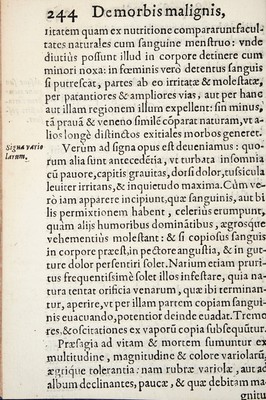 244 De morbis malignis,
ritatem quam ex nutritione compararunt facul-
tates naturales cum sanguine menstruo: vnde
diutiùs possunt illud in corpore detinere cum
minori noxa: in fœminis verò detentus sanguis
si putrescat, partes ab eo irritatæ & molestatæ,
per patantiores & ampliores vias, aut per hanc
aut illam regionem illum expellent: sin minus,
tā prauâ & veneno simile cōparat naturam, vt a-
lios longè distinctos exitiales morbos generet.
Signa vario
larum.
Verùm ad signa opus est deueniamus: quo-
rum alia sunt antecedētia, vt turbata insomnia
cū pauore, capitis grauitas, dorsi dolor, tussicula
leuiter irritans, & inquietudo maxima. Cùm ve-
rò iam apparere incipiunt, quæ sanguinis, aut bi
lis permixtionem habent, celeriùs erumpunt,
quàm alijs humoribus dominātibus, ægrosque
vehementiùs molestant: & si copiosus sanguis
in corpore præest, in pectore angustia, & in gut-
ture dolor persentiri solet. Narium etiam pruri-
tus frequentissimè solet illos infestare, quia na-
tura tentat orificia venarum, quæ ibi terminan-
tur, aperire, vt per illam partem copiam sangui-
nis euacuando, potentior deinde euadat. Tremo
res, & oscitationes ex vaporū copia subsequūtur.
Præsagia ad vitam & mortem sumuntur ex
multitudine, magnitudine & colore variolarū,
ægrique tolerantia: nam rubræ variolæ, aut ad
album declinantes, paucæ, & quæ debitam ma
gnitu